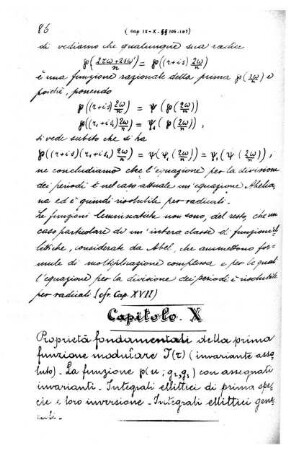 86 (Cap. IX-X. §§ 106, 107)
di vediamo che qualunque sua radice
℘(2τω+2iω/n) = ℘((τ+i)2ω/n)
è una funzione razionale della prima ℘(2ω/n) e
poichè, ponendo
℘((τ+is)2ω/n) = ψ(℘(2ω/n))
℘((τ₁+is₁)2ω/n) = ψ₁(℘(2ω/n)),
si vede subito che si ha
℘((τ+is)(τ₁+is₁)2ω/n) = ψ(ψ₁(2ω/n)) = ψ₁(ψ(2ω/n)),
ne concludiamo che l'equazione per la divisione
dei periodi è nel caso attuale un'equazione Abelia-
na ed è quindi risolubile per radicali.
Le funzioni lemniscatiche non sono, del resto, che un
caso particolare di un'intera classe di funzioni el-
littiche, considerate da Abel, che ammettono for-
mule di moltiplicazione complessa e per le quali
l'equazione per la divisione dei periodi è risolubile
per radicali (cfr. Cap. XVII)
Capitolo X
Proprietà fondamentali della prima
funzione modulare J(τ) (invariante asso-
luto). - La funzione ℘(u; g₂, g₃) con assegnati
invarianti. - Integrali ellittici di prima spe-
cie e loro inversione. - Integrali ellittici gene-